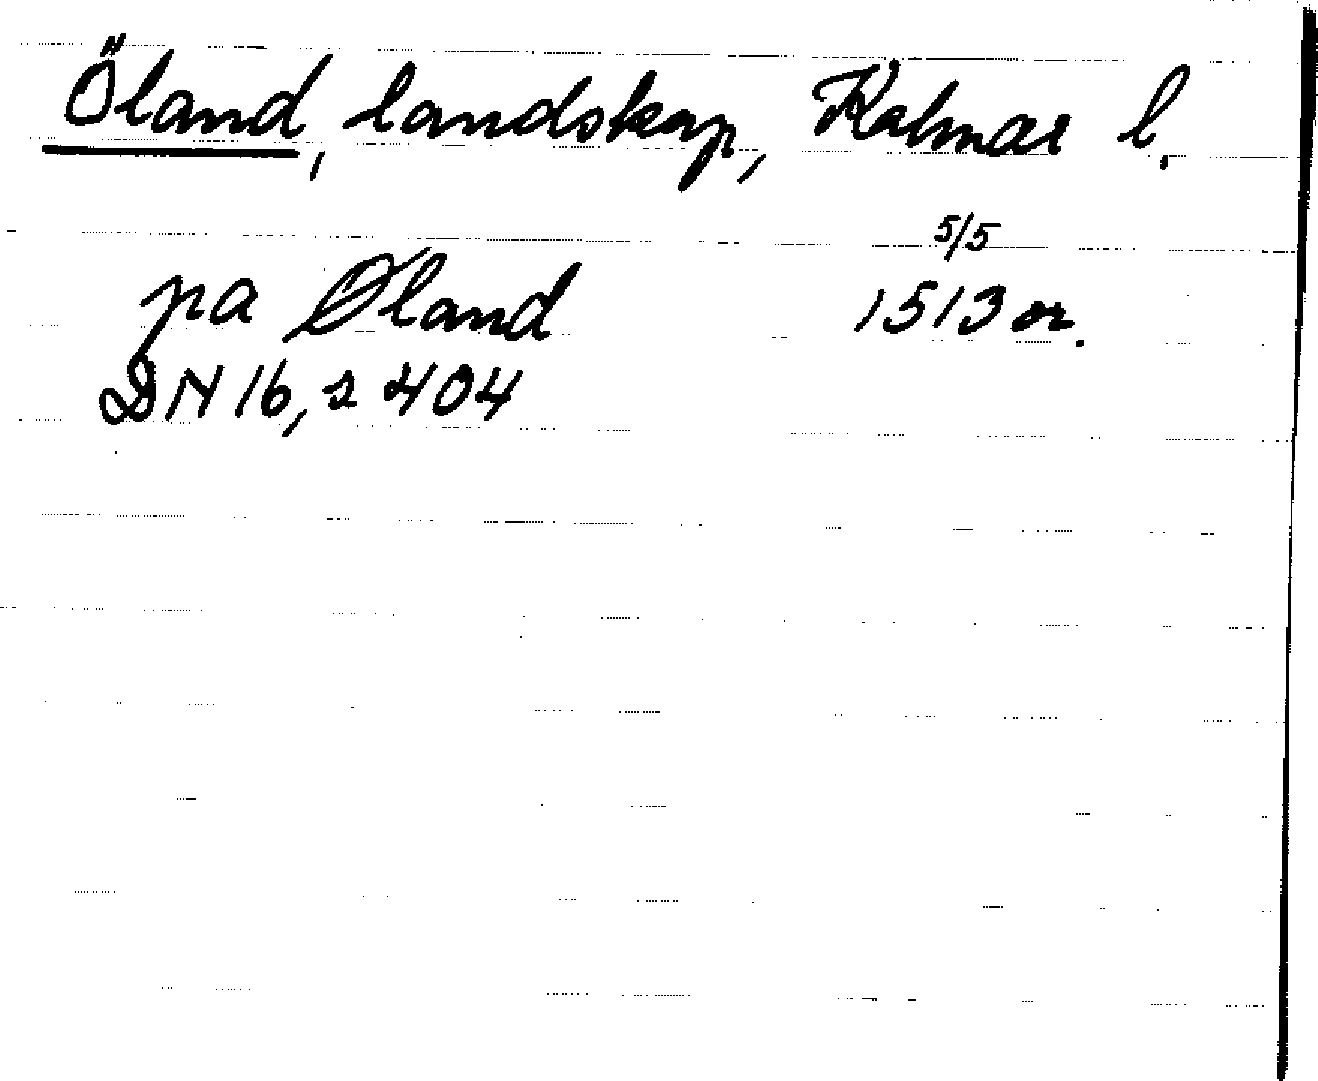 Öland, landskap, Kalmar l.
5/5
pa Øland 1513 or.
DN 16, s 404